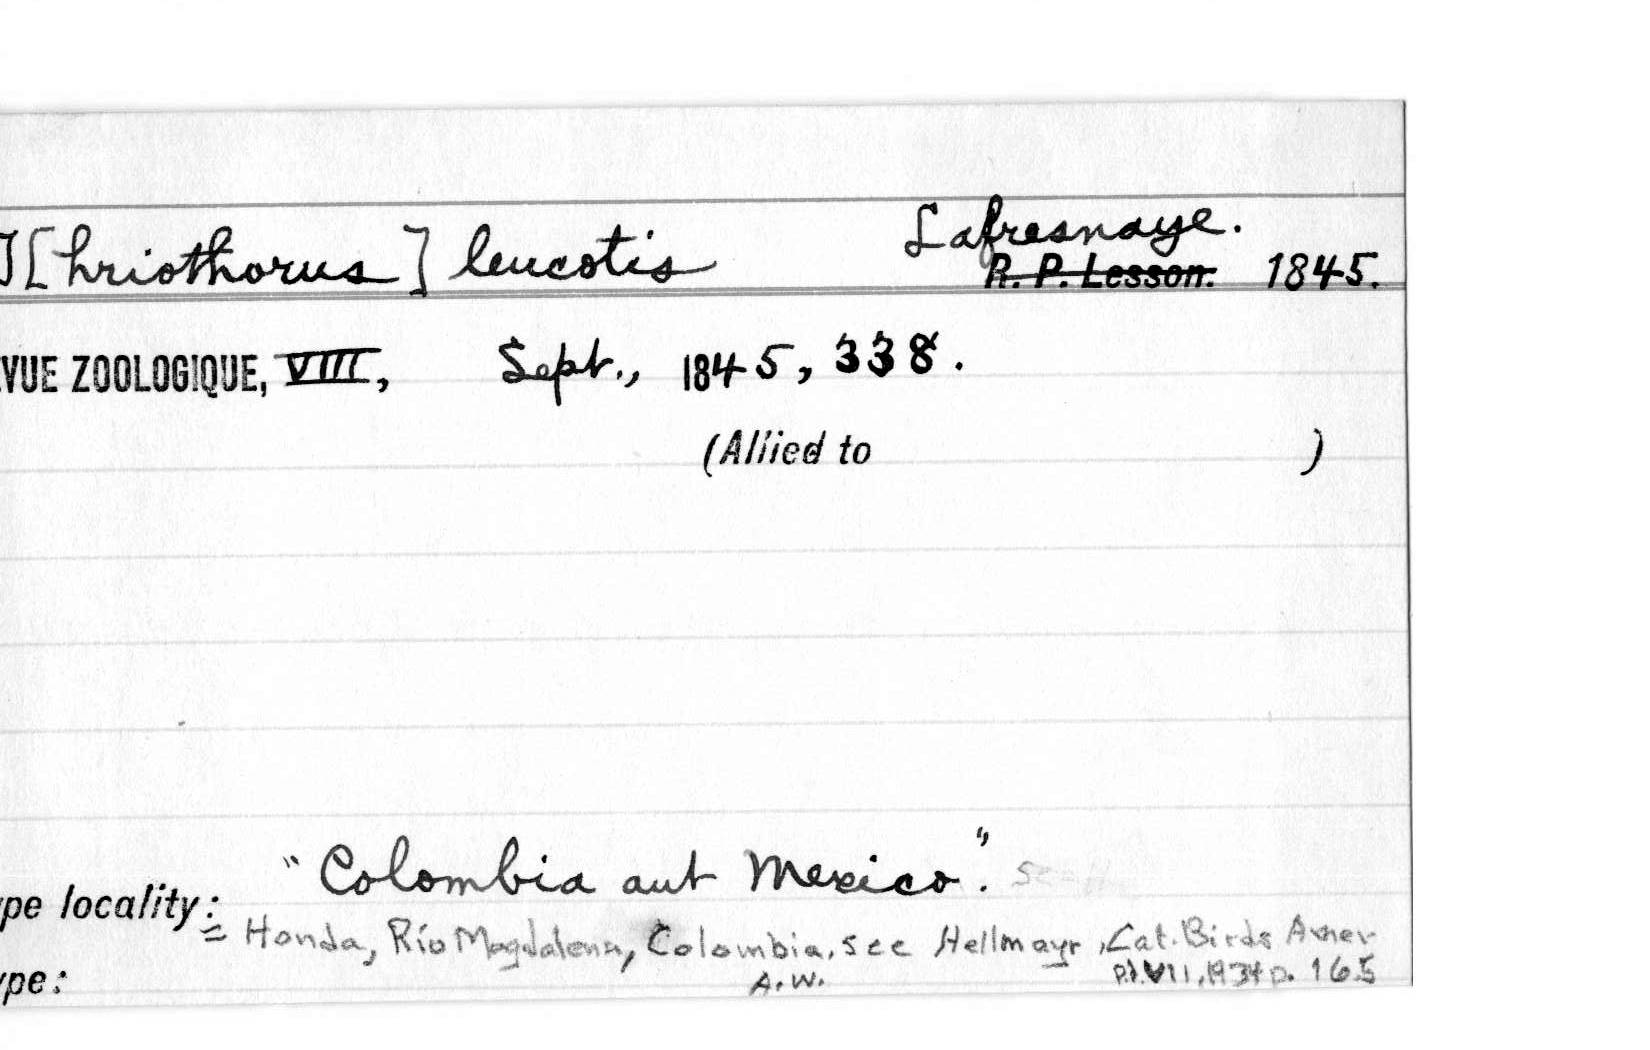 T[hriothorus] leucotis Lafresnaye.
R. P. Lesson. 1845.
VUE ZOOLOGIQUE, VIII, Sept., 1845, 338.
(Allied to )
"Colombia aut Mexico".
pe locality:
= Honda, Río Magdalena, Colombia, see Hellmayr, Cat. Birds Amer
pe: A.W. pt. VII, 1934 p. 165